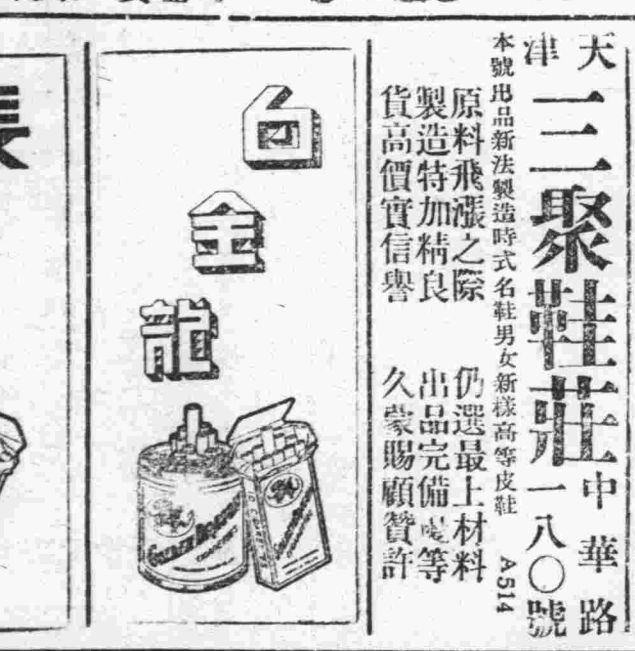 天津
三聚鞋莊
中華路
一八〇號
本號出品新法製造時式名鞋男女新樣高等皮鞋 A514
原料飛漲之際 仍選最上材料
製造特加精良 出品完備 等
貨高價實信譽 久蒙賜顧贊許
白金龍
GOLDEN DRAGON